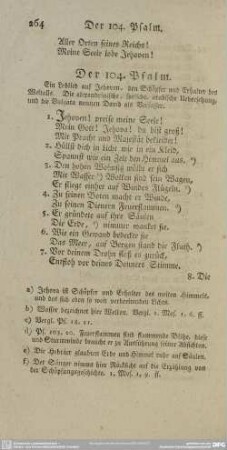 264 Der 104. Psalm.
Aller Orten seines Reichs!
Meine Seele lobe Jehoven!
Der 104. Psalm.
Ein Loblied auf Jehoven, den Schöpfer und Erhalter des
Weltalls. Die alexandrinische, syrische, arabische Uebersetzung,
und die Vulgata nennen David als Verfasser.
1. Jehoven! preise meine Seele!
Mein Gott! Jehova! du bist groß!
Mit Pracht und Majestät bekleidet!
2. Hüllst dich in Licht wie in ein Kleid,
Spannst wie ein Zelt den Himmel aus. a)
3. Den hohen Wohnsitz wölbt er sich
Mit Wasser b) Wolken sind sein Wagen,
Er steigt einher auf Windes Flügeln. c)
4. Zu seinen Boten macht er Winde,
Zu seinen Dienern Feuerflammen. d)
5. Er gründete auf ihre Säulen
Die Erde, e) nimmer wankt sie.
6. Wie ein Gewand bedeckte sie
Das Meer, auf Bergen stand die Fluth. f)
7. Vor deinem Drohn floh es zurück,
Entfloh vor deines Donners Stimme.
8. Die
a) Jehova ist Schöpfer und Erhalter des weiten Himmels,
und des sich eben so weit verbreitenden Lichts.
b) Wasser bezeichnet hier Wolken. Vergl. 1. Mos. 1, 6. ff.
c) Vergl. Ps. 18. 11.
d) Feuerflammen sind flammende Blitze, diese
und Sturmwinde braucht er zu Ausführung seiner Absichten.
e) Die Hebräer glaubten Erde und Himmel ruhe auf Säulen.
f) Der Sänger nimmt hier Rücksicht auf die Erzählung von
der Schöpfungsgeschichte. 1. Mos. 1, 9. ff.